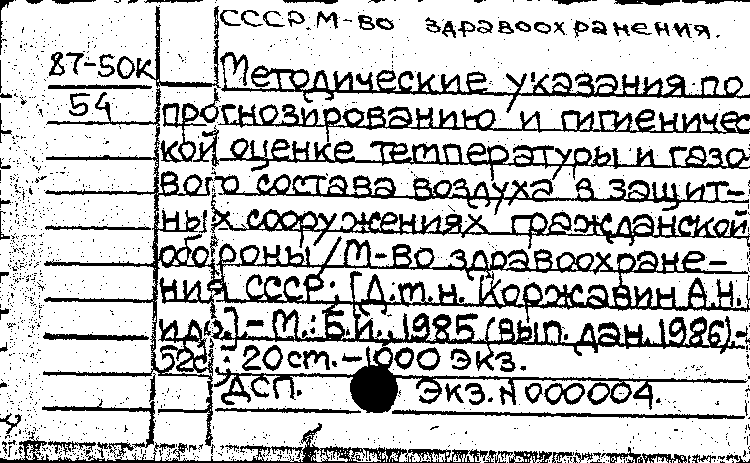 СССР. М-во здравоохранения.
87-50К
54
Методические указания по
прогнозированию и гигиеничес
кой оценке температуры и газо
вого состава воздуха в защит-
ных сооружениях гражданской
обороны/М-во здравоохране-
ния СССР; [Д.т.н. Коржавин А.Н.
и др.].- М.: Б.И., 1985 (вып. дан. 1986).-
52с.; 20 ст.-1000 экз.
ДСП. Экз. N 000004.